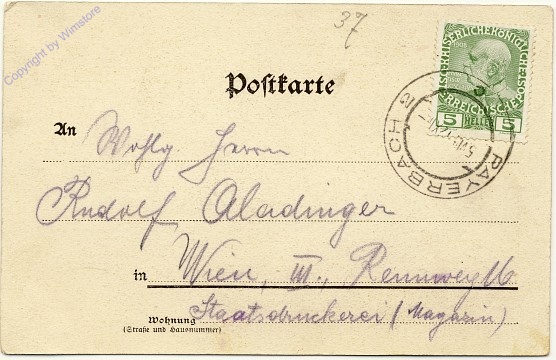 Copyright by Wimstore
37
KAISERLICHE KÖNIGLICHE
1908
ÖSTERREICHISCHE
5 HELLER 5
PAYERBACH 2
Postkarte
An Wohlg. Herrn
Rudolf Aladinger
in Wien, III., Rennweg 16
Wohnung Staatsdruckerei (Magazin)
(Straße und Hausnummer)